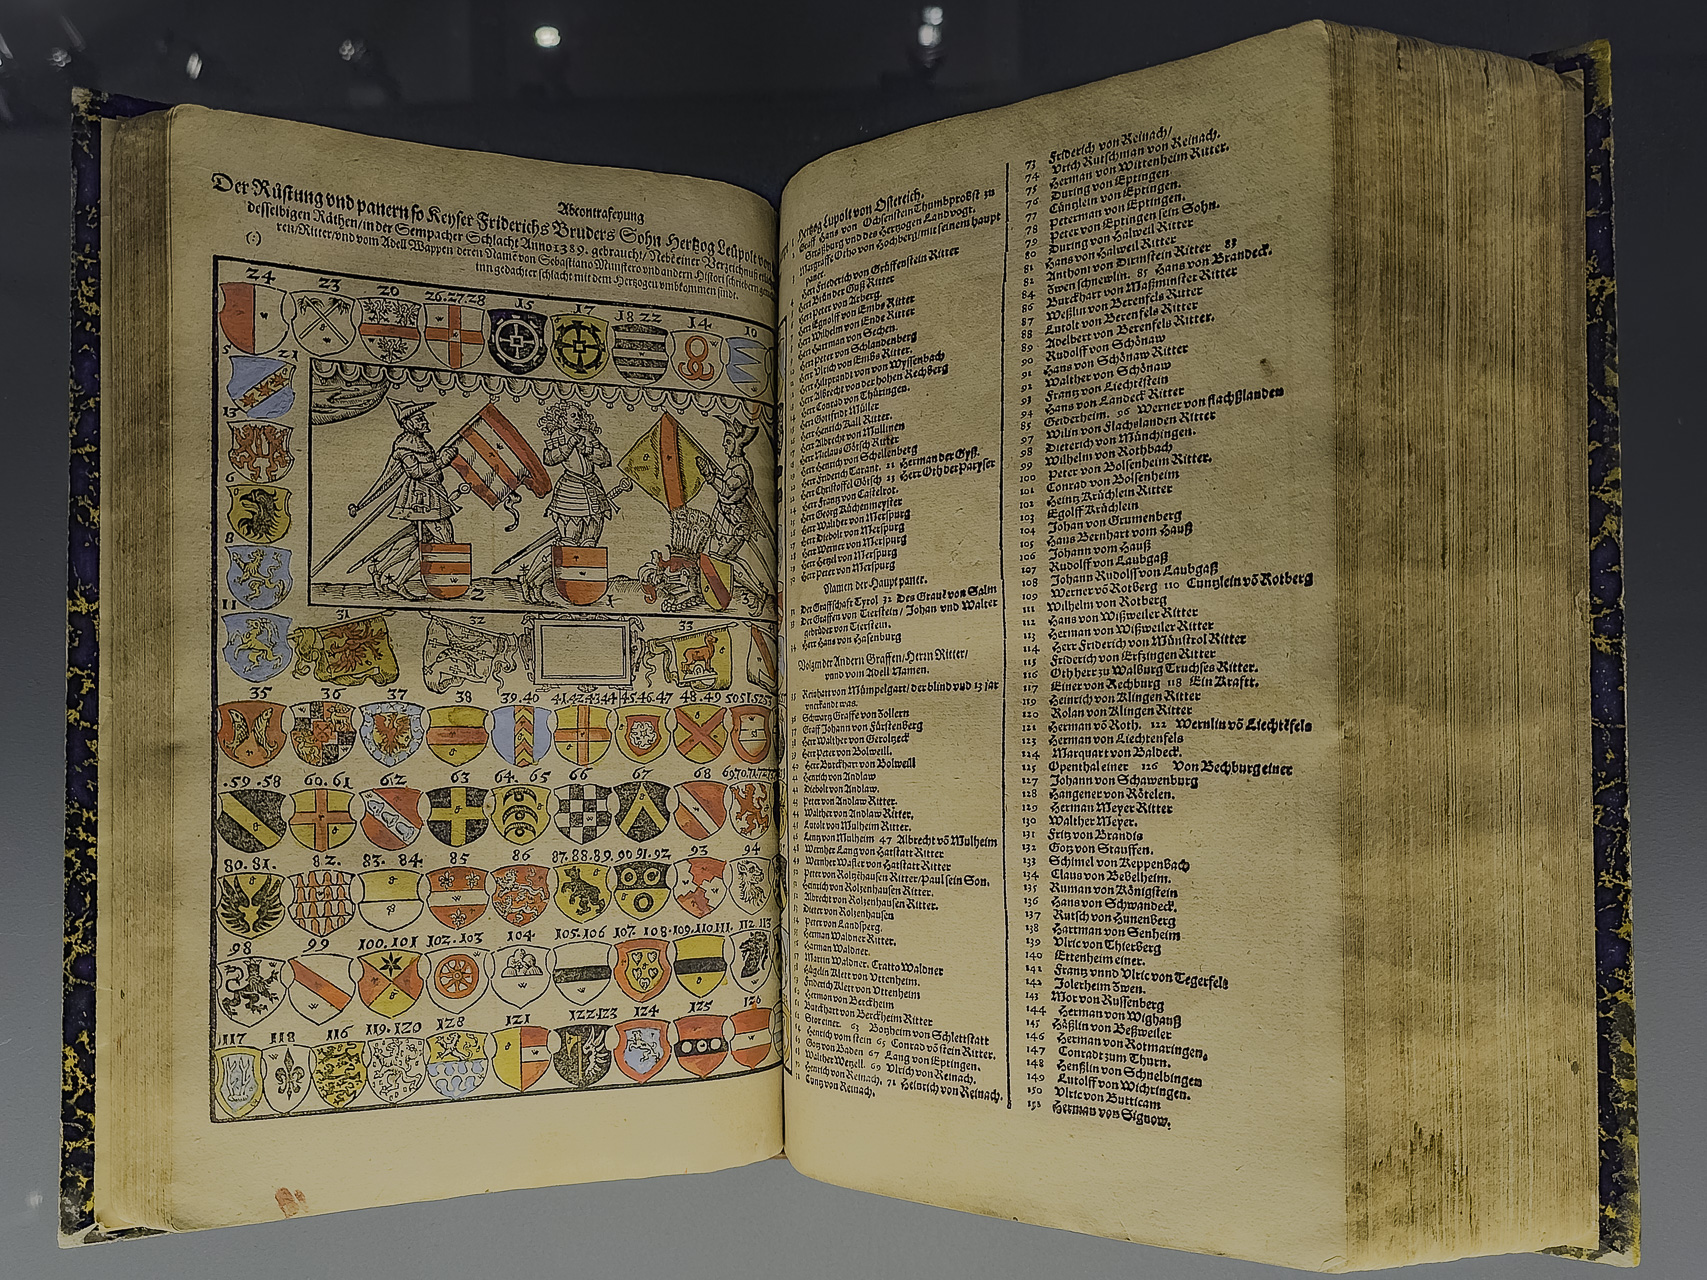 Abcontrafeyung
Der Rüstung vnd panern so Keyser Friderichs Bruders Sohn Hertzog Leüpolt von
desselbigen Räthen/in der Sempacher Schlacht Anno 1389. gebraucht/Nebē einer Verzeichnuß
ren/Ritter/vnd vom Adell Wappen deren Namē von Sebastiano Munstero vnd andern Histori schreibern
(:) inn gedachter schlacht mit dem Hertzogen vmbkommen sindt.
24 23 20 26.27.28 15 17 18 22 14 10
5 21
13
6
8
11
2 1 3
31 32 33
35 36 37 38 39.40 41.42.43.44 45.46.47 48.49 50 51.52.
.59.58 60.61 62 63 64. 65 66 67 68 69 70.71.72
80. 81. 82. 83. 84. 85 86 87.88.89.90 91.92 93 94
98 99 100.101 102.103 104 105.106 107. 108.109.110.111. 112 113
117 118 116 119.120 128 121 122.123 124 125 126
Hertzog Lupolt von Ostereich.
Graff Hans von Ochsenstein Thumbprobst zu
Straßburg vnd des Hertzogen Landvogt.
Marggraffe Otho von Hochberg/mit seinem haupt
paner.
Herr Friederich von Grüffenstein Ritter
Herr Brün der Guß Ritter
Herr Peter von Arberg.
Herr Egnolff von Embs Ritter
Herr Wilhelm von Ende Ritter
Herr Hartman von Sechen.
Herr Peter von Schlandenberg
Herr Vlrich von Embs Ritter.
Herr Hilprandt von Wyssenbach
Herr Albrecht von der hohen Rechberg
Herr Conrad von Thüringen.
Herr Gotfridt Müller
Herr Henrich Kall Ritter.
Herr Albrecht von Mullinen
Herr Niclaus Götsch Ritter
Herr Henrich von Schellenberg
Herr Friderich Tarant. 21 Herman der Gyß.
Herr Christoffel Götsch 23 Herr Oth der Paryser
Herr Frantz von Castelrot.
Herr Georg Küchenmeyster
Herr Walther von Merspurg
Herr Diebolt von Merspurg
Herr Werner von Merspurg
Herr Hetzel von Merspurg
Herr Peter von Merspurg
Namen der Hauptpaner.
Der Graffschafft Tyrol 32 Des Graue von Salm
Der Graffen von Tierstein/ Johan vnd Walter
gebrüder von Tierstein.
Herr Hans von Hasenburg
Volgen der Andern Graffen/Herrn Ritter/
vnnd vom Adell Namen.
Reinhart von Mümpelgart/der blind vnd 13 jar
vnerkandt was.
Schwartz Graffe von Zollern
Graff Johann von Fürstenberg
Herr Walther von Geroltzeck
Herr Peter von Bolweill.
Herr Burckhart von Bolweill
Henrich von Andlaw
Diebolt von Andlaw.
Peter von Andlaw Ritter.
Walther von Andlaw Ritter.
Lutolt von Mulheim Ritter.
Lentz von Mulheim 47 Albrecht vō Mulheim
Wernher Lang von Hatstatt Ritter
Wernher Wafler von Hatstatt Ritter
Peter von Roltzēhausen Ritter/Paul sein Son.
Heinrich von Roltzenhausen Ritter.
Albrecht von Roltzenhausen Ritter.
Dieter von Roltzenhausen
Peter von Landsperg.
Herman Waldner Ritter.
Harman Waldner
Martin Waldner. Cratto Waldner
Hügelin Klett von Vttenheim.
Friderich Klett von Vttenheim
Herman von Berckheim
Burckhart von Berckheim Ritter
Stor einer. 63 Botzheim von Schlettstatt
Henrich vom stein 65 Conrad vō stein Ritter.
Götz von Baden 67 Lang von Eptingen.
Walther Wetzell. 69 Vlrich von Reinach.
Henrich von Reinach. 71 Heinrich von Reinach.
Cuntz von Reinach.
73 Friderich von Reinach/
74 Vrich Rutschman von Reinach.
75 Herman von Wittenheim Ritter.
76 During von Eptingen
77 Cüntzlein von Eptingen.
78 Peterman von Eptingen.
79 Peter von Eptingen sein Sohn.
80 During von Halweil Ritter
81 Hans von Halweil Ritter
82 Anthoni von Dirmstein Ritter 83
84 Zwen schnewlin. 85 Hans von Brandeck.
86 Burckhart von Maßminster Ritter
87 Weßlin von Berenfels Ritter
88 Lutolt von Berenfels Ritter
89 Adelbert von Berenfels Ritter.
90 Rudolff von Schönaw
91 Hans von Schönaw Ritter
92 Walther von Schönaw
93 Frantz von Liechtēstein
94 Hans von Landeck Ritter
85 Geiderheim. 96 Werner von flachßlanden
97 Wilin von Flachslanden Ritter
98 Dietterich von Münchingen.
99 Wilhelm von Rothbach
100 Peter von Bolsenheim Ritter.
101 Conrad von Bolsenheim
102 Heintz Krüchlein Ritter
103 Egolff Krüchlein
104 Johan von Grumenberg
105 Hans Bernhart vom Hauß
106 Johann vom Hauß
107 Rudolff von Laubgaß
108 Johann Rudolff von Laubgaß
109 Werner vō Rotberg 110 Cuntzlein vō Rotberg
111 Wilhelm von Rotberg
112 Hans von Wißweiler Ritter
113 Herman von Wißweiler Ritter
114 Herr Friderich von Münstrol Ritter
115 Friderich von Erfzingen Ritter
116 Oth herr zu Walburg Truchses Ritter.
117 Einer von Rechburg 118 Ein Krafft.
119 Heinrich von Klingen Ritter
120 Rolan von Klingen Ritter
121 Herman vō Roth. 122 Wernlin vō Liechtēfels
123 Herman von Liechtenfels
124 Marquart von Baldeck.
125 Openthal einer 126 Von Bechburg einer
127 Johann von Schawenburg
128 Hangener von Rötelen.
129 Herman Meyer Ritter
130 Walther Meyer.
131 Fritz von Brandis
132 Götz von Stauffen.
133 Schimel von Reppenbach
134 Claus von Bebelheim.
135 Ruman von Königstein
136 Hans von Schwandeck.
137 Rutsch von Hunenberg
138 Hartman von Senheim
139 Vlric von Thierberg
140 Ettenheim einer.
141 Frantz vnnd Vlric von Tegerfels
142 Jolerheim Zwen.
143 Mor von Russenberg
144 Herman von Wighauß
145 Häßlin von Beßweiler
146 Herman von Rotmaringen.
147 Conradt zum Thurn.
148 Henßlin von Schnelbingen
149 Lutolff von Wichringen.
150 Vlric von Butticam
152 Herman von Signow.